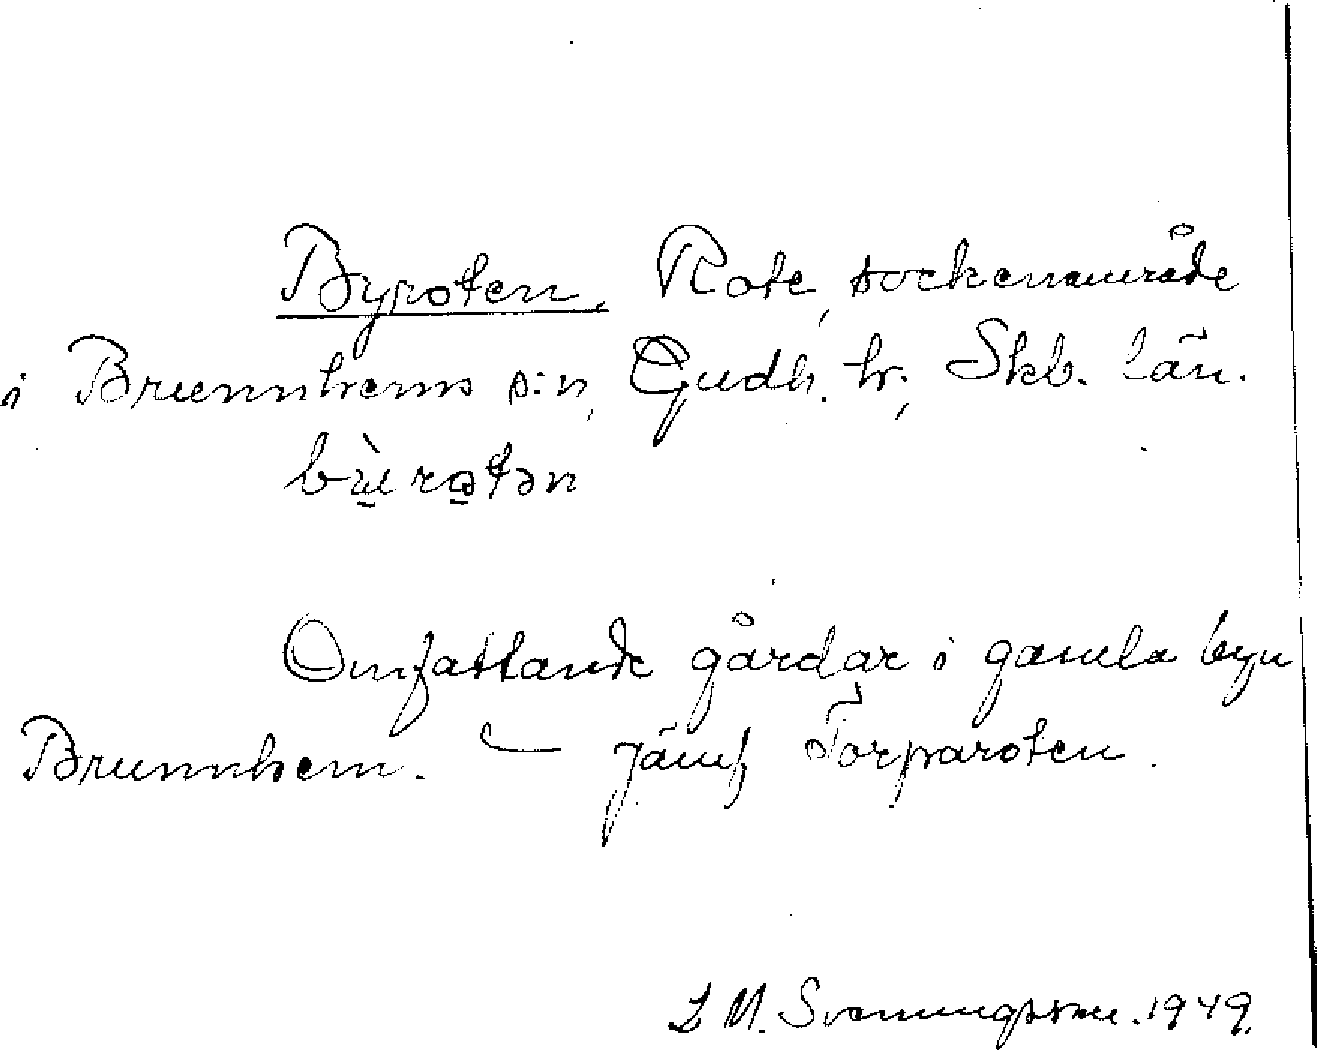 Byroten. Rote, sockenområde
i Brunnhems s:n, Gudh. hr, Skb. län.
bỳrotən
Omfattande gårdar i gamla byn
Brunnhem. — Jämf Torparoten.
L M. Svenningsson. 1949.